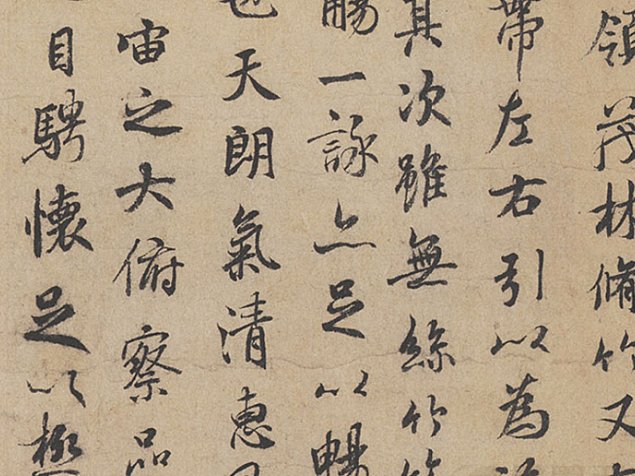 領茂林脩竹又
帶左右引以為
其次雖無絲竹
觴一詠亦足以暢
也天朗氣清惠
宙之大俯察品
目騁懷足以極